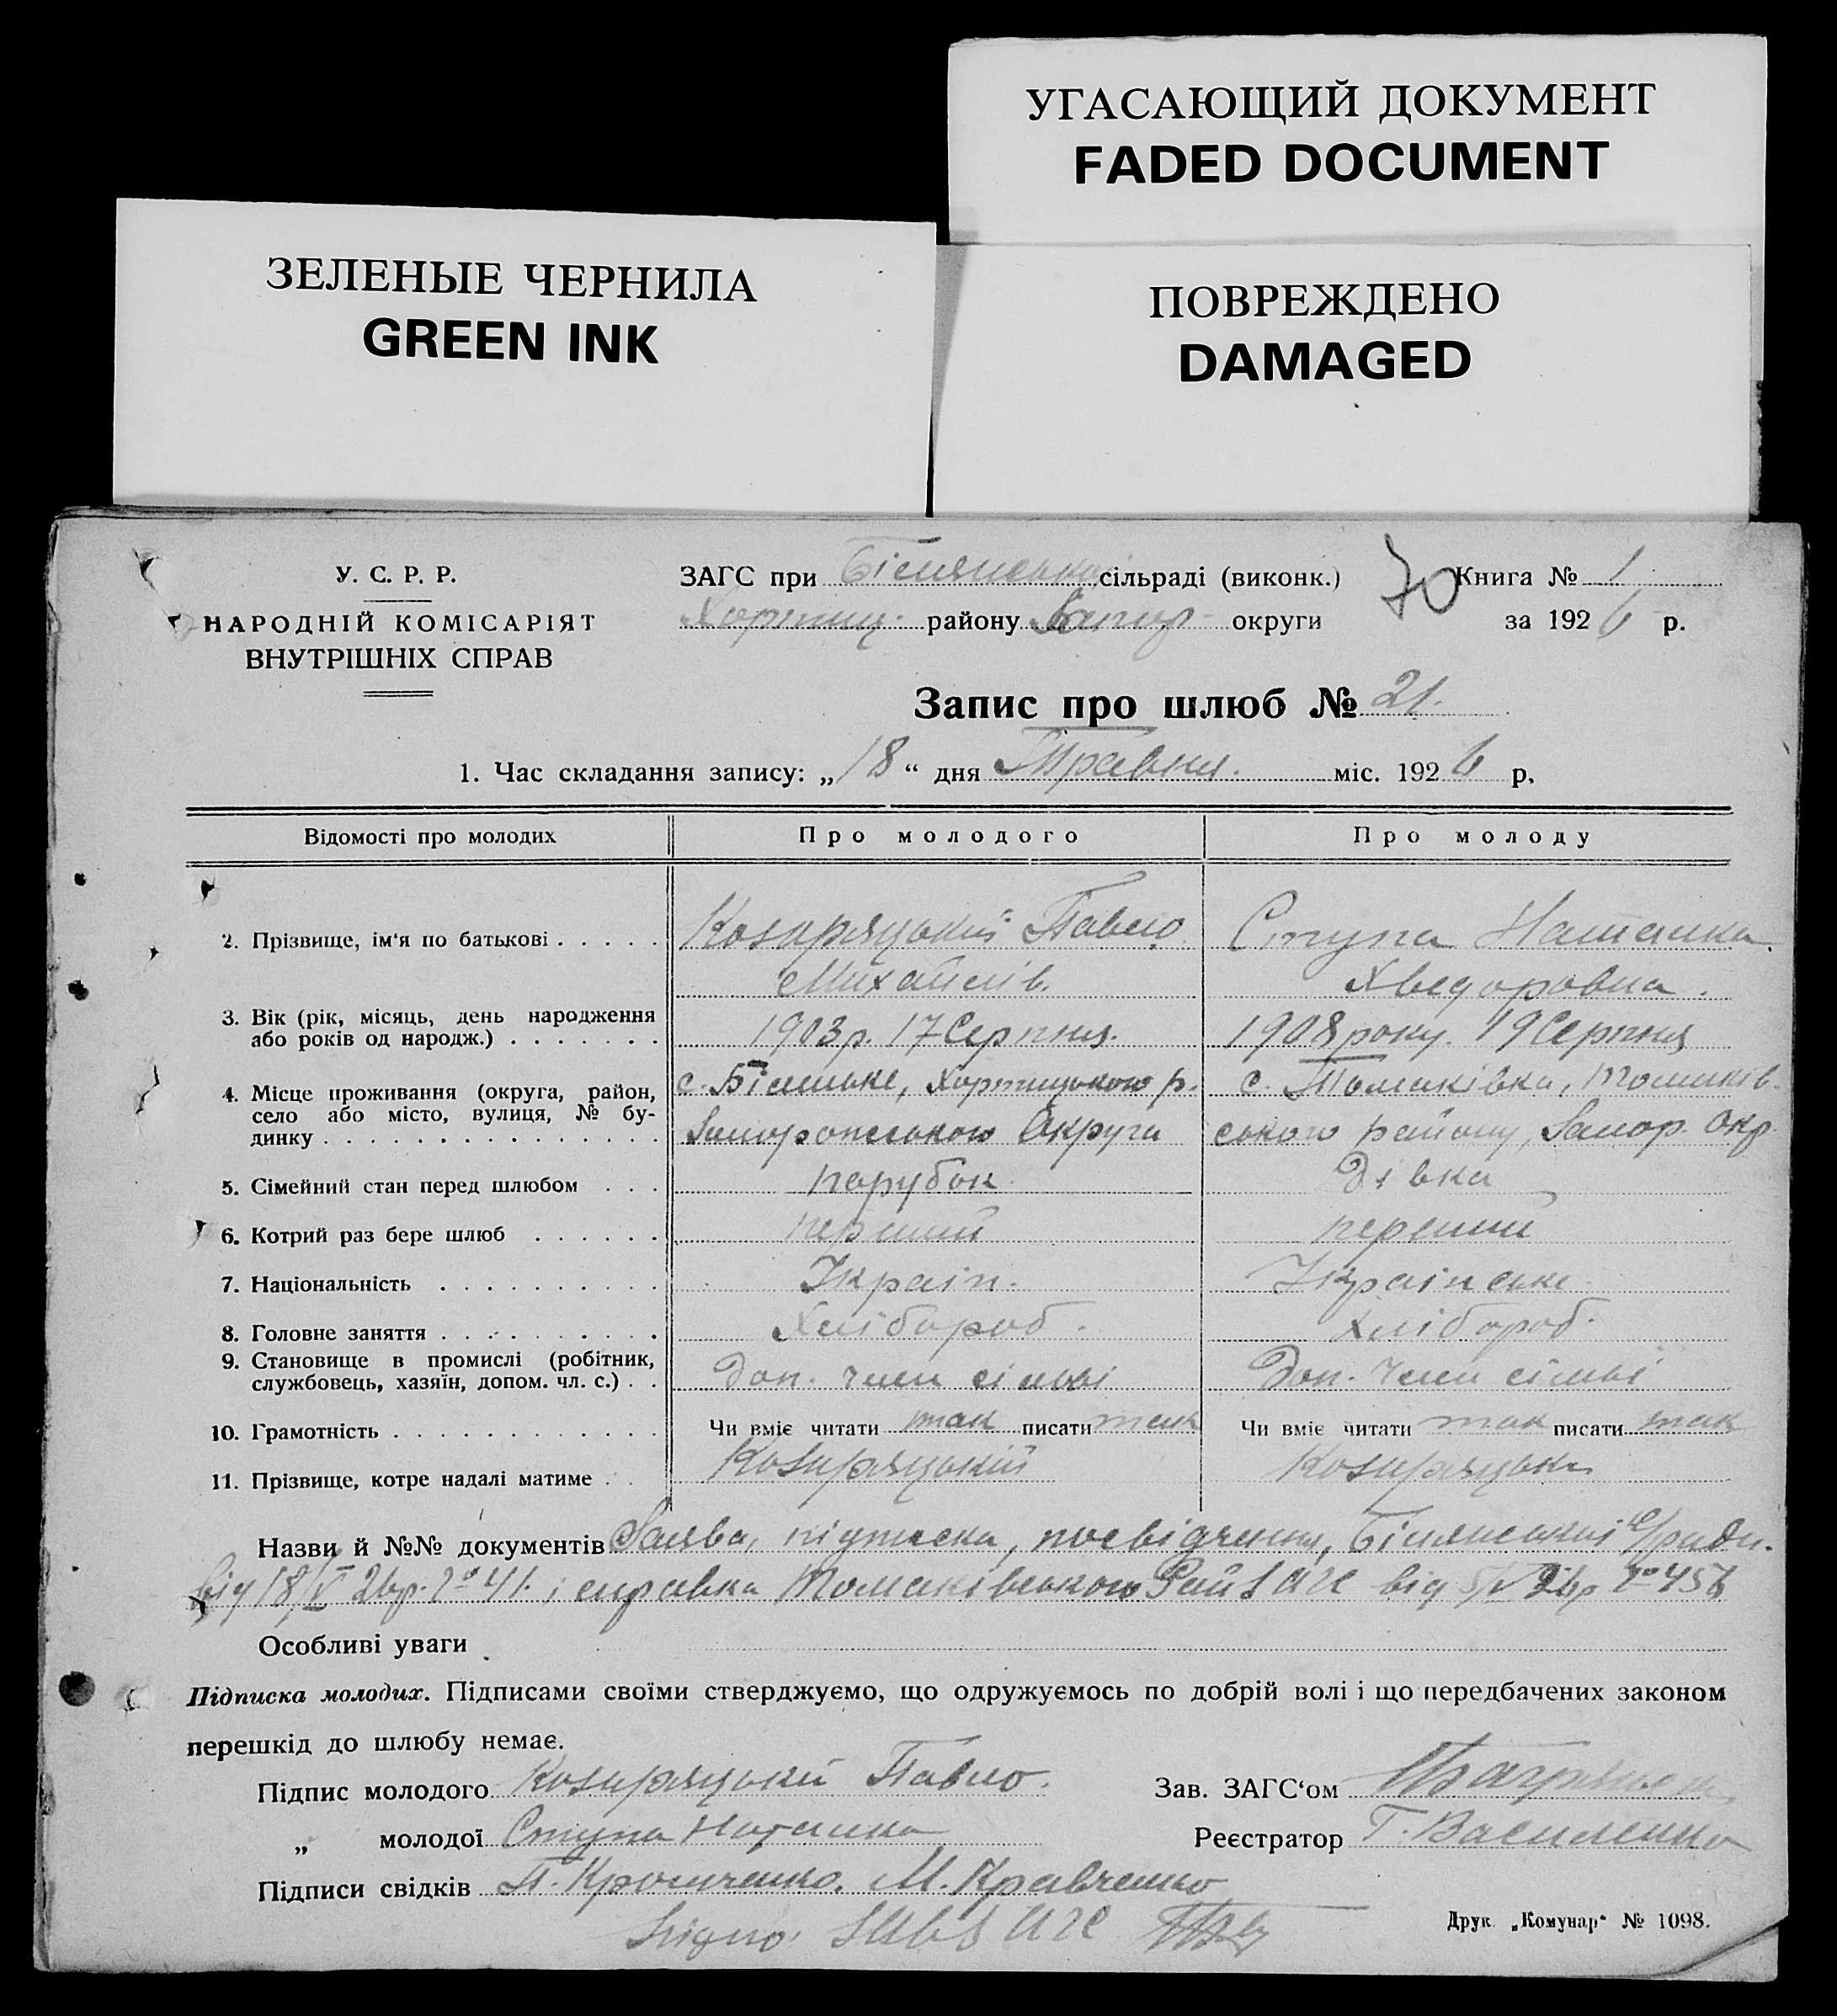 УГАСАЮЩИЙ ДОКУМЕНТ
FADED DOCUMENT
ЗЕЛЕНЫЕ ЧЕРНИЛА
GREEN INK
ПОВРЕЖДЕНО
DAMAGED
У. С. Р. Р.
НАРОДНІЙ КОМІСАРІЯТ
ВНУТРІШНІХ СПРАВ
ЗАГС при сільраді (виконк.)
Хортиц. району Запор. округи
70
Книга № 1
за 1926 р.
Запис про шлюб № 21.
1. Час складання запису: „18“ дня Травня. міс. 1926 р.
Відомості про молодих Про молодого Про молоду
2. Прізвище, ім'я по батькові Козиряцький Павло Ступа Наталка
Михайлів. Хведоровна.
3. Вік (рік, місяць, день народження
або років од народж.) 1903 р. 17 Серпня. 1908 року. 19 Серпня
4. Місце проживання (округа, район, с. Біленьке, Хортицького р. с. Томаківка, Томаків-
село або місто, вулиця, № бу-
динку Запорожського Округа ського району, Запор. Окр.
5. Сімейний стан перед шлюбом парубок Дівка
6. Котрий раз бере шлюб перший перший
7. Національність Україн. Українська
8. Головне заняття Хлібороб. Хлібороб.
9. Становище в промислі (робітник,
службовець, хазяїн, допом. чл. с.) Доп. член сімьі Доп. член сімьі
10. Грамотність Чи вміє читати так писати так Чи вміє читати так писати так
11. Прізвище, котре надалі матиме Козиряцький Козиряцька
Назви й №№ документів Заява, підписка, посвідчення, Білянської с/ради.
від 18/V 26р. № 41. і справка Томаківського Рай ЗАГС від 5/V 26р № 456
Особливі уваги
Підписка молодих. Підписами своїми стверджуємо, що одружуємось по добрій волі і що передбачених законом
перешкід до шлюбу немає.
Підпис молодого Козиряцький Павло.
Зав. ЗАГС‘ом
„ молодої Ступа Наталка
Реєстратор Г. Василенко
Підписи свідків М. Кравченко
Згідно: ЗАГС
Друк. „Комунар“ № 1098.